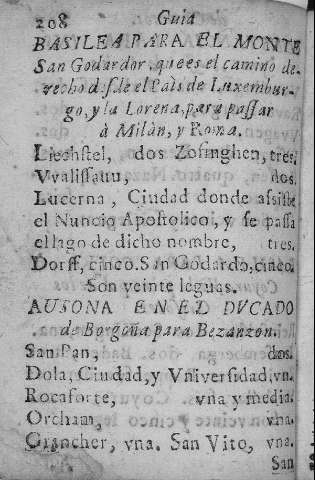 208 Guia
BASILEA PARA EL MONTE
San Godardor, que es el camino de-
recho desde el Païs de Luxembur-
go, y la Lorena, para passar
à Milàn, y Roma.
Liechstel, dos Zofinghen, tres.
Vvalissauu, dos.
Lucerna, Ciudad donde assiste
el Nuncio Apostolico, y se passa
el lago de dicho nombre, tres.
Dorff, cinco. San Godardo, cinco.
Son veinte leguas.
AUSONA EN EL DVCADO
de Borgoña para Bezanzon.
San Pan, dos.
Dola, Ciudad, y Vniversidad, vn.
Rocaforte, vna y media.
Orcham, vna.
Grancher, vna. San Vito, vna.
San